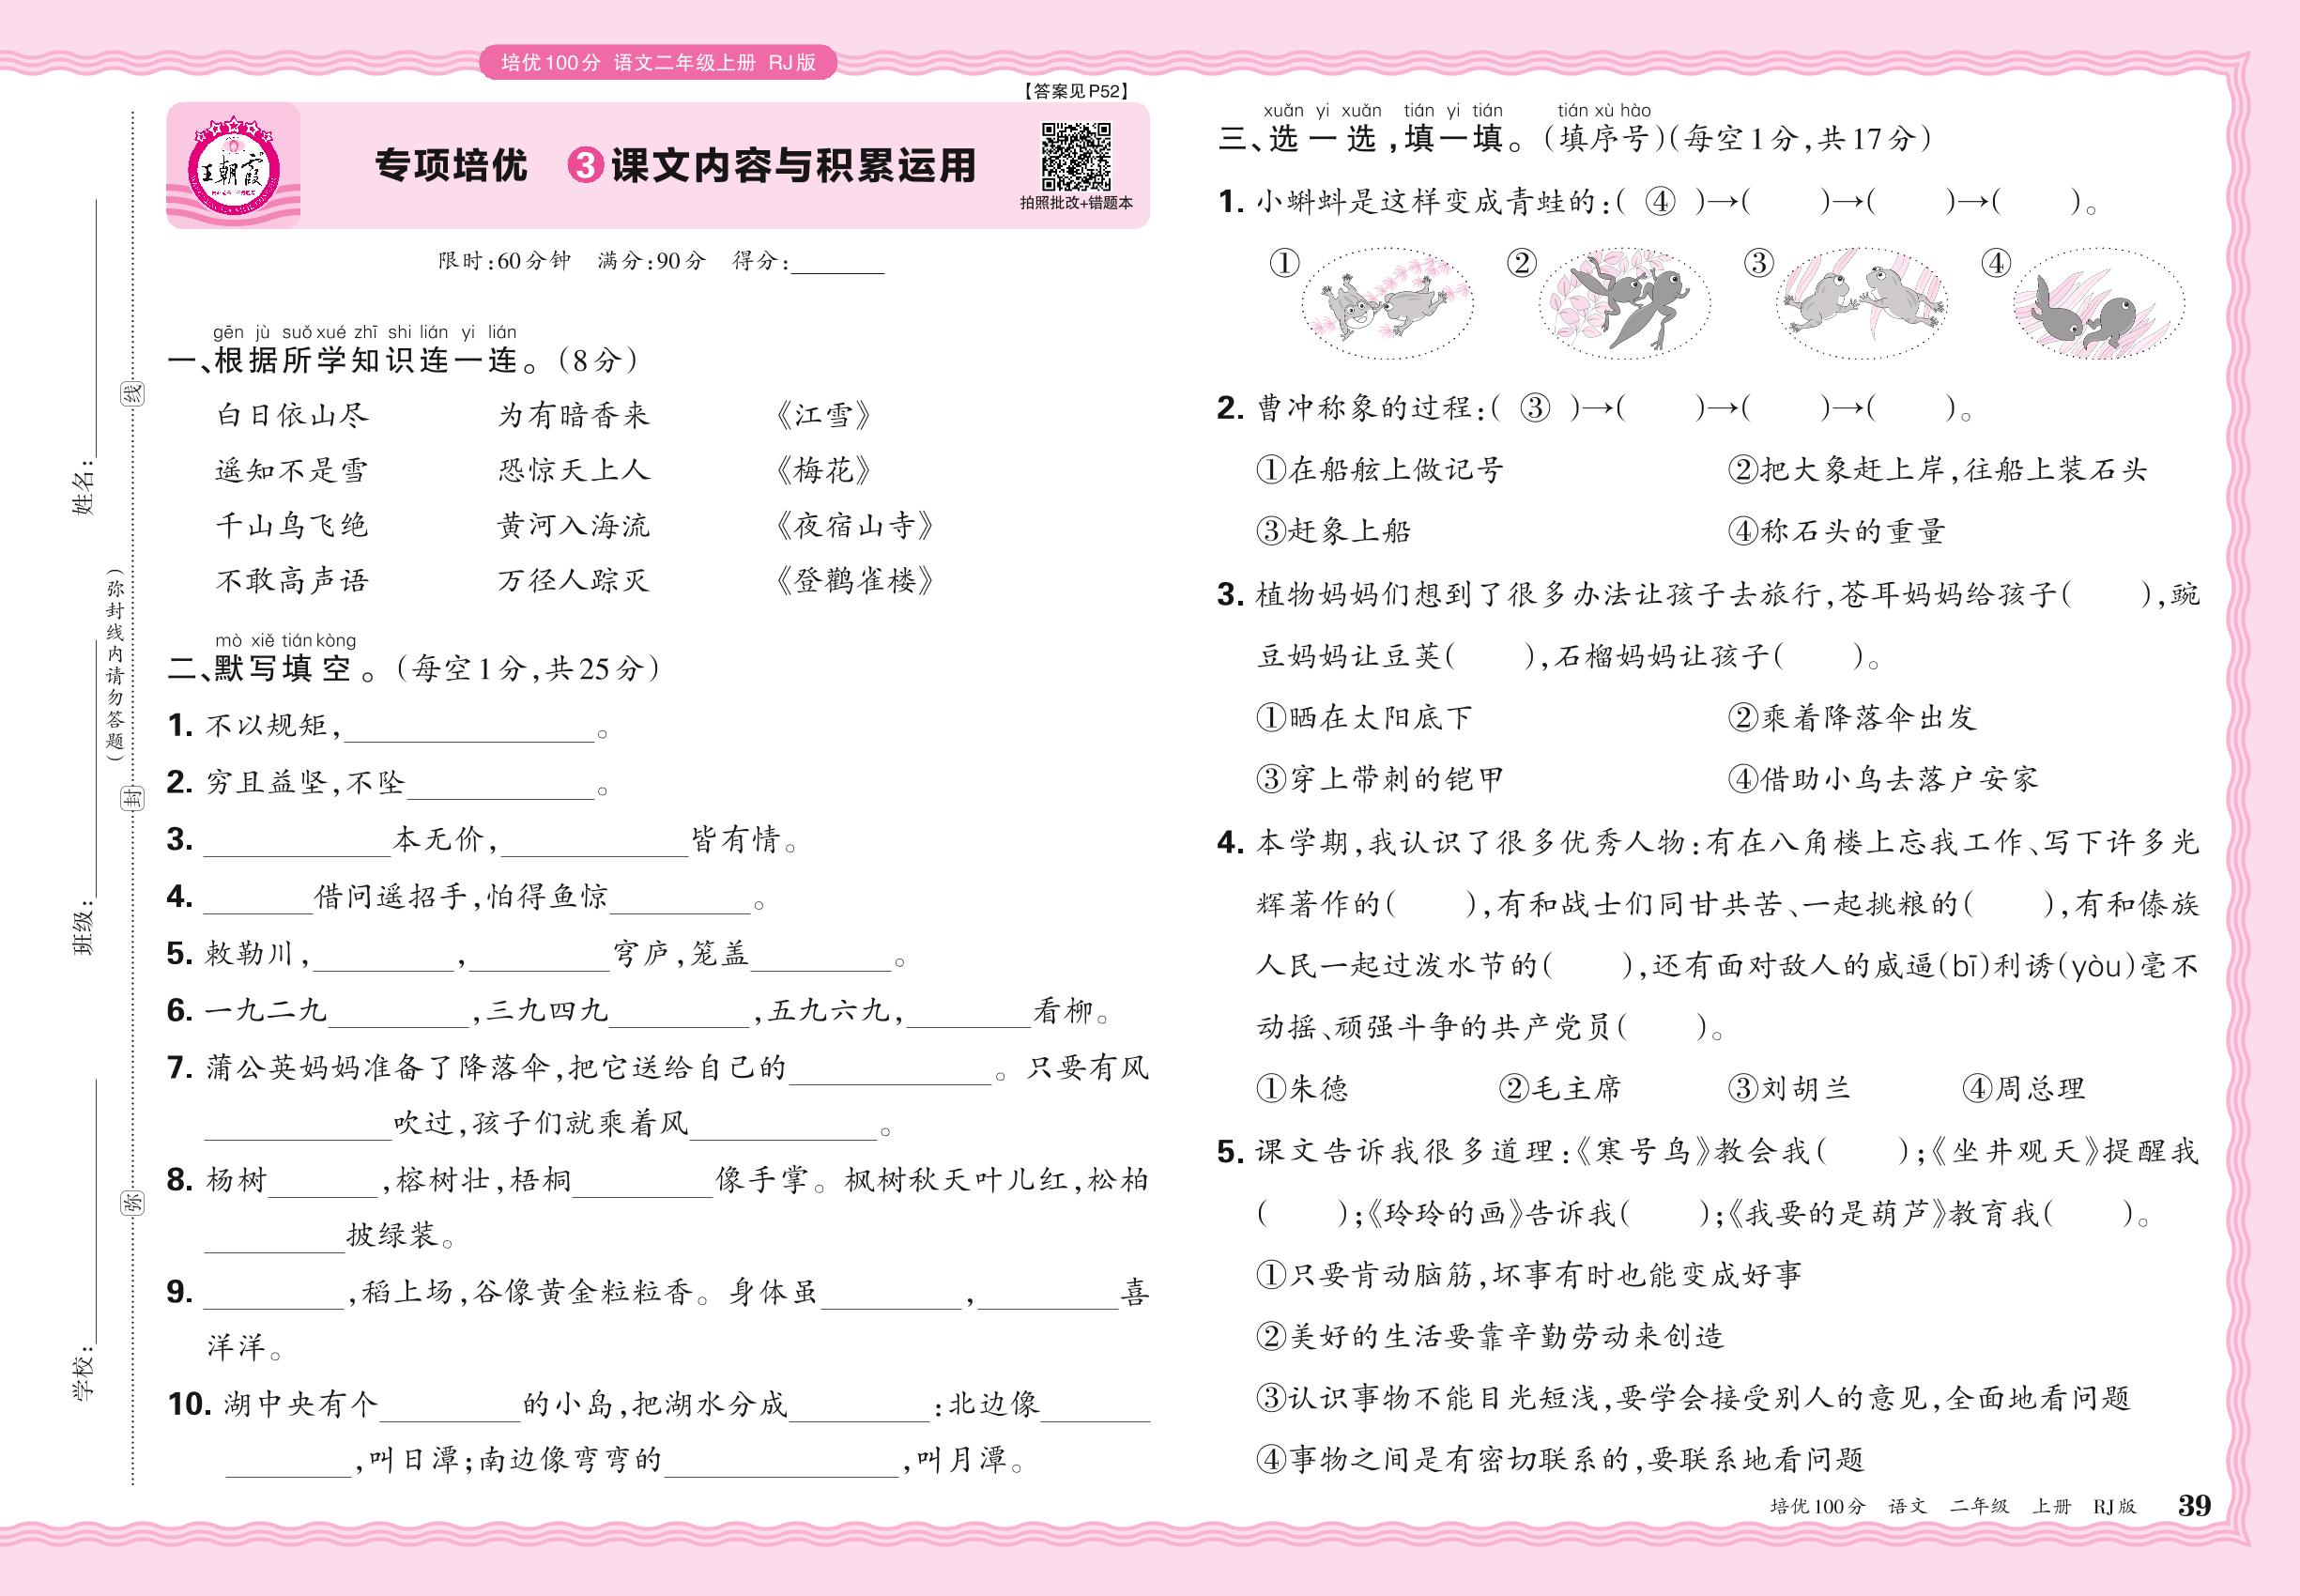 培优100分 语文二年级上册 RJ版
【答案见P52】
王朝霞
专项培优 3 课文内容与积累运用
拍照批改+错题本
限时:60分钟 满分:90分 得分:________
gēn jù suǒ xué zhī shi lián yi lián
一、根据所学知识连一连。(8分)
白日依山尽 为有暗香来 《江雪》
遥知不是雪 恐惊天上人 《梅花》
千山鸟飞绝 黄河入海流 《夜宿山寺》
不敢高声语 万径人踪灭 《登鹳雀楼》
mò xiě tián kòng
二、默写填空。(每空1分,共25分)
1. 不以规矩,________。
2. 穷且益坚,不坠________。
3. ________本无价,________皆有情。
4. ________借问遥招手,怕得鱼惊________。
5. 敕勒川,________,________穹庐,笼盖________。
6. 一九二九________,三九四九________,五九六九,________看柳。
7. 蒲公英妈妈准备了降落伞,把它送给自己的________。只要有风
________吹过,孩子们就乘着风________。
8. 杨树________,榕树壮,梧桐________像手掌。枫树秋天叶儿红,松柏
________披绿装。
9. ________,稻上场,谷像黄金粒粒香。身体虽________,________喜
洋洋。
10. 湖中央有个________的小岛,把湖水分成________:北边像________
________,叫日潭;南边像弯弯的________,叫月潭。
xuǎn yi xuǎn tián yi tián tián xù hào
三、选一选,填一填。(填序号)(每空1分,共17分)
1. 小蝌蚪是这样变成青蛙的:( ④ )→( )→( )→( )。
① ② ③ ④
2. 曹冲称象的过程:( ③ )→( )→( )→( )。
①在船舷上做记号 ②把大象赶上岸,往船上装石头
③赶象上船 ④称石头的重量
3. 植物妈妈们想到了很多办法让孩子去旅行,苍耳妈妈给孩子( ),豌
豆妈妈让豆荚( ),石榴妈妈让孩子( )。
①晒在太阳底下 ②乘着降落伞出发
③穿上带刺的铠甲 ④借助小鸟去落户安家
4. 本学期,我认识了很多优秀人物:有在八角楼上忘我工作、写下许多光
辉著作的( ),有和战士们同甘共苦、一起挑粮的( ),有和傣族
人民一起过泼水节的( ),还有面对敌人的威逼(bī)利诱(yòu)毫不
动摇、顽强斗争的共产党员( )。
①朱德 ②毛主席 ③刘胡兰 ④周总理
5. 课文告诉我很多道理:《寒号鸟》教会我( );《坐井观天》提醒我
( );《玲玲的画》告诉我( );《我要的是葫芦》教育我( )。
①只要肯动脑筋,坏事有时也能变成好事
②美好的生活要靠辛勤劳动来创造
③认识事物不能目光短浅,要学会接受别人的意见,全面地看问题
④事物之间是有密切联系的,要联系地看问题
培优100分 语文 二年级 上册 RJ版 39
学校:________ 班级:________ 姓名:________
(弥封线内请勿答题)
弥 封 线